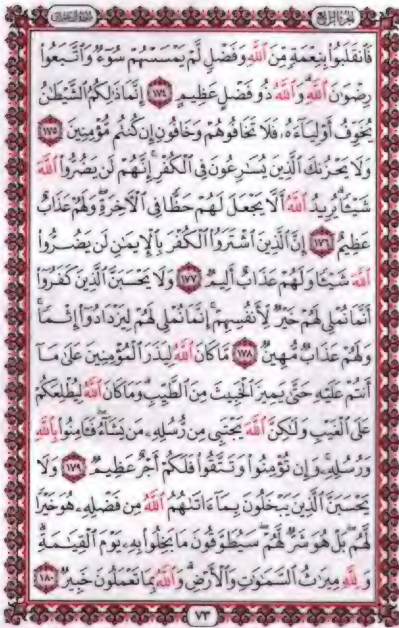 الجزء الرابع
فَٱنقَلَبُوا۟ بِنِعْمَةٍ مِّنَ ٱللَّهِ وَفَضْلٍ لَّمْ يَمْسَسْهُمْ سُوٓءٌ وَٱتَّبَعُوا۟
رِضْوَٰنَ ٱللَّهِ وَٱللَّهُ ذُو فَضْلٍ عَظِيمٍ ١٧٤ إِنَّمَا ذَٰلِكُمُ ٱلشَّيْطَٰنُ
يُخَوِّفُ أَوْلِيَآءَهُۥ فَلَا تَخَافُوهُمْ وَخَافُونِ إِن كُنتُم مُّؤْمِنِينَ ١٧٥
وَلَا يَحْزُنكَ ٱلَّذِينَ يُسَٰرِعُونَ فِى ٱلْكُفْرِ إِنَّهُمْ لَن يَضُرُّوا۟ ٱللَّهَ
شَيْـًٔا يُرِيدُ ٱللَّهُ أَلَّا يَجْعَلَ لَهُمْ حَظًّا فِى ٱلْـَٔاخِرَةِ وَلَهُمْ عَذَابٌ
عَظِيمٌ ١٧٦ إِنَّ ٱلَّذِينَ ٱشْتَرَوُا۟ ٱلْكُفْرَ بِٱلْإِيمَٰنِ لَن يَضُرُّوا۟
ٱللَّهَ شَيْـًٔا وَلَهُمْ عَذَابٌ أَلِيمٌ ١٧٧ وَلَا يَحْسَبَنَّ ٱلَّذِينَ كَفَرُوٓا۟
أَنَّمَا نُمْلِى لَهُمْ خَيْرٌ لِّأَنفُسِهِمْ إِنَّمَا نُمْلِى لَهُمْ لِيَزْدَادُوٓا۟ إِثْمًا
وَلَهُمْ عَذَابٌ مُّهِينٌ ١٧٨ مَّا كَانَ ٱللَّهُ لِيَذَرَ ٱلْمُؤْمِنِينَ عَلَىٰ مَآ
أَنتُمْ عَلَيْهِ حَتَّىٰ يَمِيزَ ٱلْخَبِيثَ مِنَ ٱلطَّيِّبِ وَمَا كَانَ ٱللَّهُ لِيُطْلِعَكُمْ
عَلَى ٱلْغَيْبِ وَلَٰكِنَّ ٱللَّهَ يَجْتَبِى مِن رُّسُلِهِۦ مَن يَشَآءُ فَـَٔامِنُوا۟ بِٱللَّهِ
وَرُسُلِهِۦ وَإِن تُؤْمِنُوا۟ وَتَتَّقُوا۟ فَلَكُمْ أَجْرٌ عَظِيمٌ ١٧٩ وَلَا
يَحْسَبَنَّ ٱلَّذِينَ يَبْخَلُونَ بِمَآ ءَاتَىٰهُمُ ٱللَّهُ مِن فَضْلِهِۦ هُوَ خَيْرًا
لَّهُم بَلْ هُوَ شَرٌّ لَّهُمْ سَيُطَوَّقُونَ مَا بَخِلُوا۟ بِهِۦ يَوْمَ ٱلْقِيَٰمَةِ
وَلِلَّهِ مِيرَٰثُ ٱلسَّمَٰوَٰتِ وَٱلْأَرْضِ وَٱللَّهُ بِمَا تَعْمَلُونَ خَبِيرٌ ١٨٠
٧٣